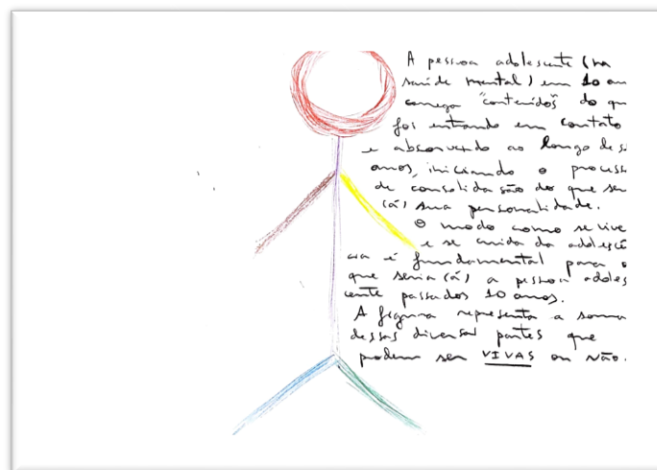 A pessoa adolescente (na
saúde mental) em 10 an
carrega "conteúdos" do qu
foi entrando em contato
e absorvendo ao longo des
anos, iniciando o process
de consolidasão do que ser
(á) sua personalidade.
O modo como se vive
e se cuida da adolescê
cia é fundamental para o
que seria (á) a pessoa adoles
cente passados 10 anos.
A figura representa a soma
dessas diversas partes que
podem ser VIVAS ou NÃO.